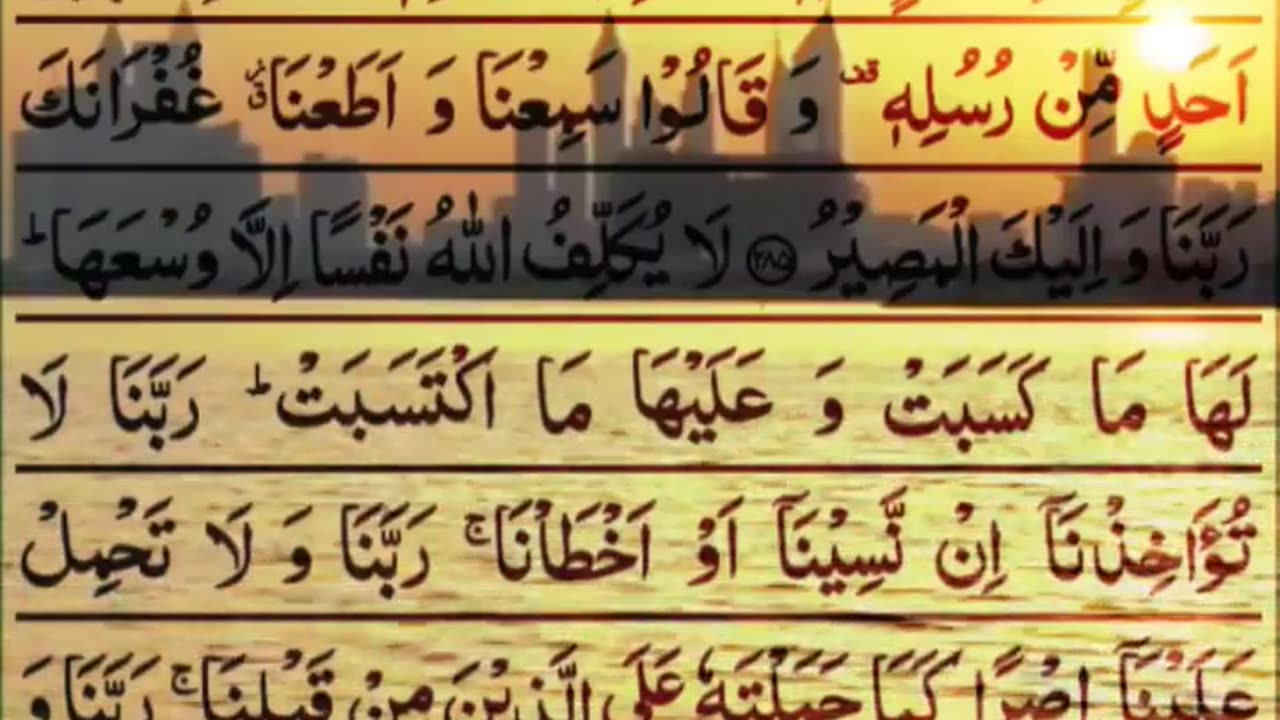 اَحَدٍ مِّنْ رُسُلِهٖ ۫ وَ قَالُوْا سَمِعْنَا وَ اَطَعْنَا ٘ۗ غُفْرَانَكَ
رَبَّنَا وَ اِلَيْكَ الْمَصِيْرُ ۝۲۸۵ لَا يُكَلِّفُ اللّٰهُ نَفْسًا اِلَّا وُسْعَهَا ؕ
لَهَا مَا كَسَبَتْ وَ عَلَيْهَا مَا اكْتَسَبَتْ ؕ رَبَّنَا لَا
تُؤَاخِذْنَاۤ اِنْ نَّسِيْنَاۤ اَوْ اَخْطَاْنَا ۚ رَبَّنَا وَ لَا تَحْمِلْ
عَلَيْنَاۤ اِصْرًا كَمَا حَمَلْتَهٗ عَلَى الَّذِيْنَ مِنْ قَبْلِنَا ۚ رَبَّنَا وَ